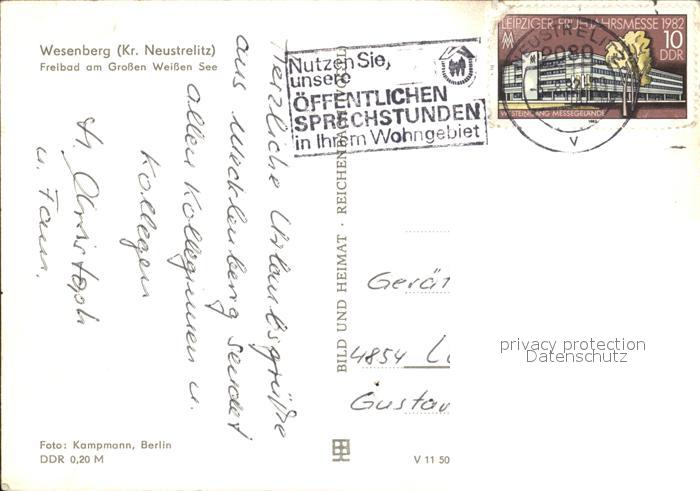 Wesenberg (Kr. Neustrelitz)
Freibad am Großen Weißen See
Herzliche Urlaubsgrüße
aus Mecklenburg sendet
allen Kolleginnen u.
Kollegen
H. Christoph
u. Fam.
Foto: Kampmann, Berlin
DDR 0,20 M
BILD UND HEIMAT · REICHENBACH
V 11 50
Nutzen Sie,
unsere
ÖFFENTLICHEN
SPRECHSTUNDEN
in Ihrem Wohngebiet
LEIPZIGER FRÜHJAHRSMESSE 1982
10
DDR
WESTEINGANG MESSEGELÄNDE
NEUSTRELITZ
2080
Gerät
4854
Gustav
privacy protection
Datenschutz